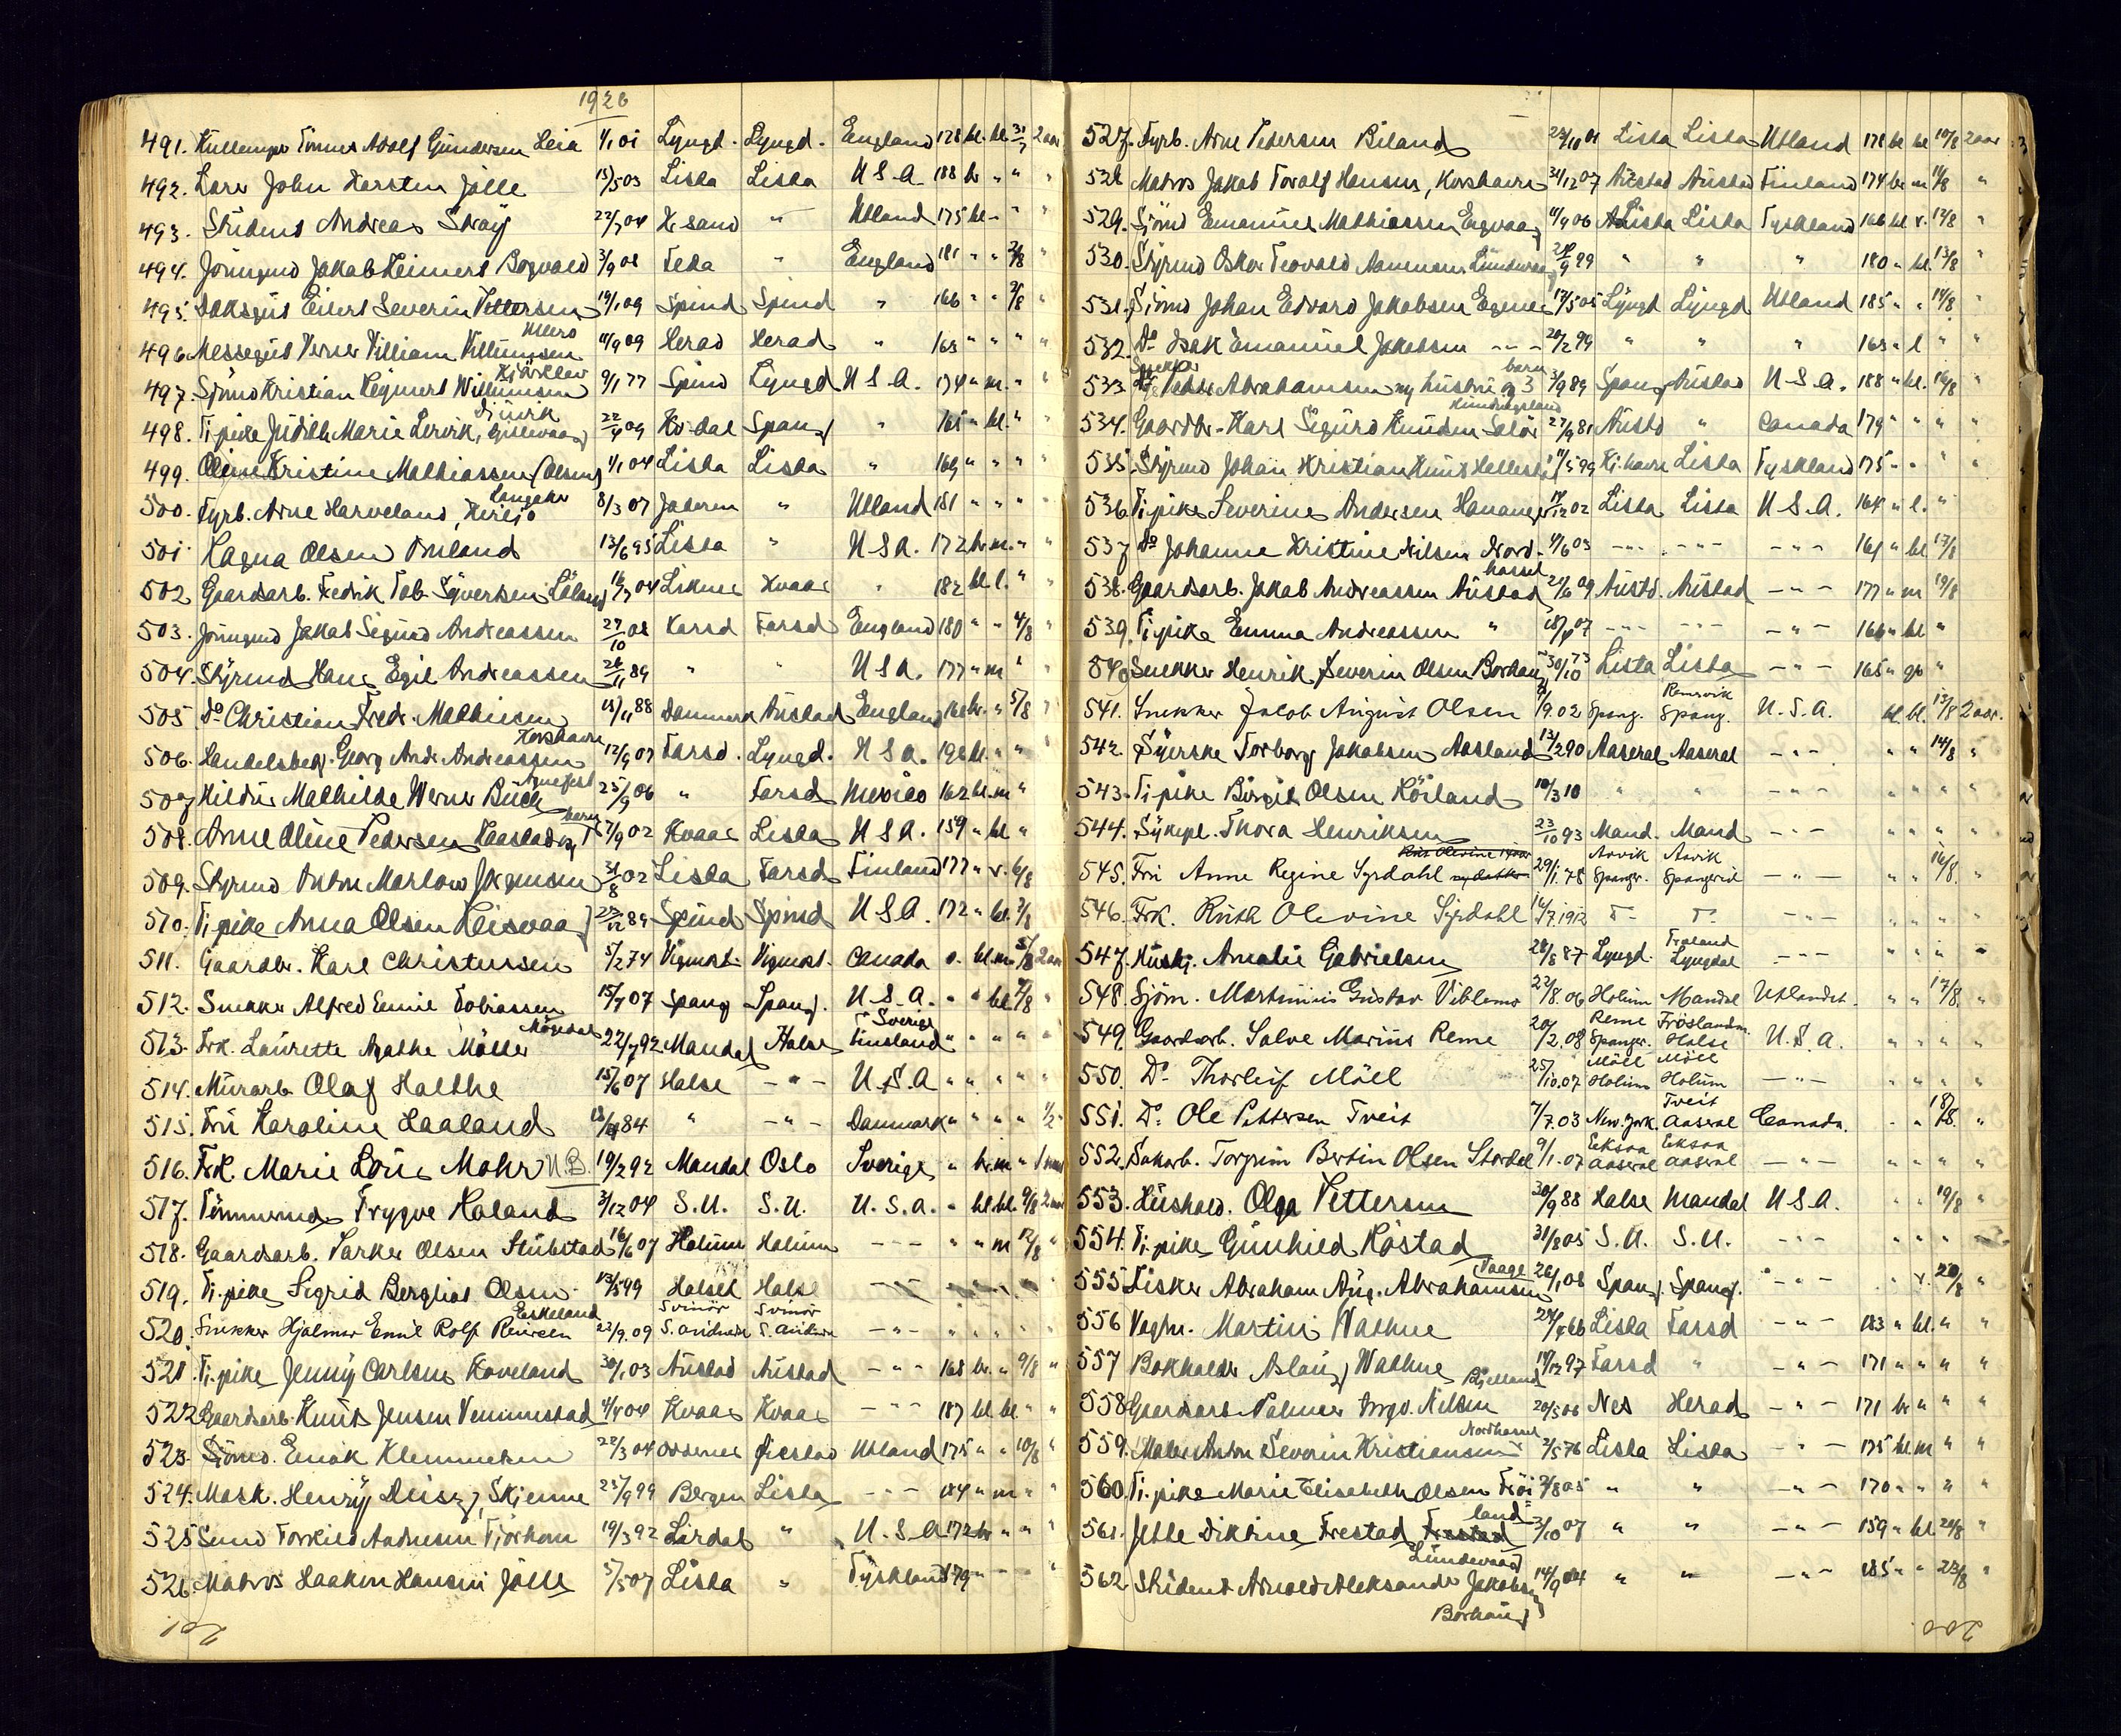 1926
491. Adolf Gundersen Leia 1/1 01 Lyngd. Lyngd. England 178 bl. bl. 31/7 2 aar
492. Lærer John Karsten Jølle 13/5 03 Lista Lista U S A. 188 br " " "
493. Student Andreas Stray 22/7 04 Kr sand " Utland 175 bl " " "
494. Jungmd Jakob Reinert Bogvald 3/9 08 Feda " England 181 " " 2/8 "
495. Eilert Severin Pettersen 19/1 09 Spind Spind " 166 " " 2/8 "
496. Messegut Verner Villiam Villumsen 11/9 09 Herad Herad " 163 " " " "
497. Sjömd Kristian Reynert Willumsen 9/1 77 Spind Lyngd U S A. 174 " m. " "
498. Tj. pike Judith Marie Lervik, 22/4 09 Kv-dal Spang " 165 " bl. " "
499. Oline Kristine Mathiassen (Olsen) 1/1 04 Lista Lista " 169 " " " "
500. Fyrb. Arne Harveland, 8/3 07 Jaderen " Utland 181 " " " "
501. Olsen Omland 13/6 95 Lista " U S A. 172 br. m. " "
502. Gaardsarb. Fedrik Tob. Syvertsen 04 Liknes Kvaas " 182 bl l. " "
503. Jungmd Jakob Sigurd Andreassen 27/10 08 Farsd Farsd England 180 " " 4/8 "
504. Styrmd Hans Egil Andreassen 26/11 89 " " U S A. 177 " m " "
505. Do Christian Fredr. Mathiesen 18/11 88 Danmark Austad England br. " 5/8 "
506. Handelsbetj. Georg Andr. Andreassen Korshavn 12/9 07 Farsd. Lyngd. U S A. bl. " " "
507. Hildur Mathilde Werner Buch 25/9 06 " Farsd Mexico 162 bl. m " "
508. Anne Oline Pedersen 7/9 02 Kvaas Lista U S A. 159 " bl " "
509. Styrmd Anton Marlow Jörgensen 31/8 02 Lista Farsd Finland 177 " v. 6/8
510. Tj. pike Anna Olsen 89 Spind Spind U S A. 172 " bl. 7/8
511. Gaardbr. Karl Christensen 5/2 74 Vigmost. Vigmost. Canada bl. m 5/8 2 aar
512. Snekker Alfred Emil Tobiassen 15/7 07 Spang Spang. U. S. A. " " bl 7/8 "
513. Frk. Laurette Agathe Möller 22/7 92 Mandal Halse Sverige Finland " " " " "
514. Murarb Olaf Halthe 15/6 07 Halse - " - U S. A " " " " "
515. Fru Karoline Haaland 84 " - " - Danmark " " " " 1/2 "
516. Frk. Marie Mohr N.B. 19/2 92 Mandal Oslo Sverige " br. m "
517. Tömmermd Trygve Haland 3/12 04 S. U. S. U. U. S. A. " bl. bl. 9/8 2 aar
518. Gaardsarb. Parker Olsen Stubstad 16/6 07 Holum Holum - " - " " m 12/8 "
519. Tj. pike Sigrid Bergliot Olsen 13/5 99 Halse Halse - " -
520. Snekker Hjalmar Emil Rolf Reiersen Eskeland 22/9. 09 Svinör S. Audn. Svinör S. Audn. - " - " " " " "
521. Tj. pike Jenny Carlsen Haveland 30/1 03 Austad Austad - " - 168 br. " 9/8 "
522. Gaardsarb. Knut Jensen Vemmestad 4/4 04 Kvaas Kvaas - " - 187 bl bl. " "
523. Sjömd. Enok Klemmetsen 22/3 04 Utland 175 " " 10/8 "
524. Mask. Henry Skjenne 25/9 99 Bergen Lista - " - 184 " m " "
525. Torkild Andresen Tjörhom 19/3 92 Lirdal " U. S. A 172 br " " "
526. Matros Haakon Hansen Jölle 5/5 07 Lista " Tyskland 179 " - - "
201.
527. Fyrb. Arne Pedersen Biland 23/10 01 Lista Lista Utland 178 bl bl 10/8 2 aar
528. Matros Jakob Toralf Hansen, Korshavn 31/12 07 Austad Austad Finland 174 br m 11/8 "
529. Sjömd Emanuel Mathiassen Eegvaag 11/9 06 Lista Lista Tyskland 166 bl v. 12/8 "
530. Styrmd Oskar Teovald Aanensen 99 " " " 180 " bl. 13/8 "
531. Sjömd Johan Edvard Jakobsen 17/5 05 Lyngd Lyngd Utland 185 " " 14/8 "
532. Do Isak Emanuel Jakobsen - - - 20/2 99 " " " 163 " l " "
533. Snekker Peder Abrahamsen m/ hustru og 3 barn 3/9 89 Spang Austad U S A. 188 " bl. 16/8 "
534. Gaardbr. Karl Sigurd Knudsen 27/9 81 Austd " Canada 179 " " " "
535. Styrmd Johan Kristian Knuts 99 Kr. havn Lista Tyskland 175 " " "
536. Tj. pike Severine Andersen Hananger 02 Lista Lista U S. A. 164 " l. "
537. Do Johanne Kristine Nilsen Nordhassel 4/6 03 - " - - " - - " - 161 " bl 17/8
538. Gaardsarb. Jakob Andreassen Austad 09 Austd. Austad - " - 177 " m 19/8
539. Tj. pike Emma Andreassen " 18/4 07 - " - - " - - " - 166 " bl "
540. Snekker Henrik Severin Olsen Borhaug 30/10 73 Lista Lista - " - 165 " gr "
541. Snekker Jacob August Olsen 9. 02 Spang. Remesvik Spang. U. S. A. bl. bl. 13/8 2 aar.
542. Syerske Torborg Jakobsen Aasland 13/2 90 Aaseral Aaseral - " - " " 14/8 "
543. Tj. pike Birgit Olsen Röiland 10/3 10 " " - " - " " " "
544. Sykepl. Thora Henriksen 23/10 93 Mand. Mand - " - " " " "
545. Fru Anne Regine Syrdahl 29/1. 78 Aavik Spanger. Aavik Spangerid - " - " " 16/8. "
546. Frk. Ruth Olevine Syrdahl 16/7 1912 T- T- - " - " " " "
547. Hushj. Amalie Gabrielsen 28/8 87 Lyngd. Fraland Lyngdal - " - " " " "
548. Sjöm. Martinius Gustav Viblemo 27/8. 06 Holum Mandal Utlandet. " " 17/8. "
549. Gaardarb. Salve Marius Reme 20/2. 08 Reme Spanger. Fröslandm. Halse U. S. A. " " " "
550. Do Thorleif Möll 25/10. 07 Möll Holum Möll Holum - " - " " " "
551. Do Ole Pettersen Tveit 7/7. 03 New-York. Tveit Aaseral Canada. " " 18/8. "
552. Sakarb. Torgrim Bertin Olsen 9/1. 07 Eeksaa Aaseral Eeksaa Aaseral - " - " " " "
553. Hushold. Olga Pettersen 30/9 88 Halse Mandal U S A. " " 19/8 "
554. Tj. pike Gunhild Höstad 31/8 05 S. U. S. U. - " - " " "
555. Fisker Abraham Aug. Abrahamsen Vaage 26/1 08 Spang. Spang. - " - " v. 20/8 "
556 Vognm. Martin Wathne 66 Lista Farsd - " - 183 " bl. " "
557 Bokholder Aslaug Wathne 19/12 97 Farsd " - " - 171 " " " "
558 Gaardsarb Palmer Nilsen Bjelland 20/5 06 Nes Herad - " - 171 br " " "
559. Maler Anton Severin Kristiansen Nordhassel 2/5 76 Lista Lista - " - 175 bl. m " "
560. Tj. pike Marie Elisabeth Olsen Fröiland 2/8 05 " " - " - 170 " " " "
561. Jette Diktine Frestad 3/10 07 " " - " - 159 " bl 21/8 "
562 Student Arnold Aleksander Jakobsen Lundevaag Borhaug 14/9 04 " " - " - 185 " " 23/8 "
200